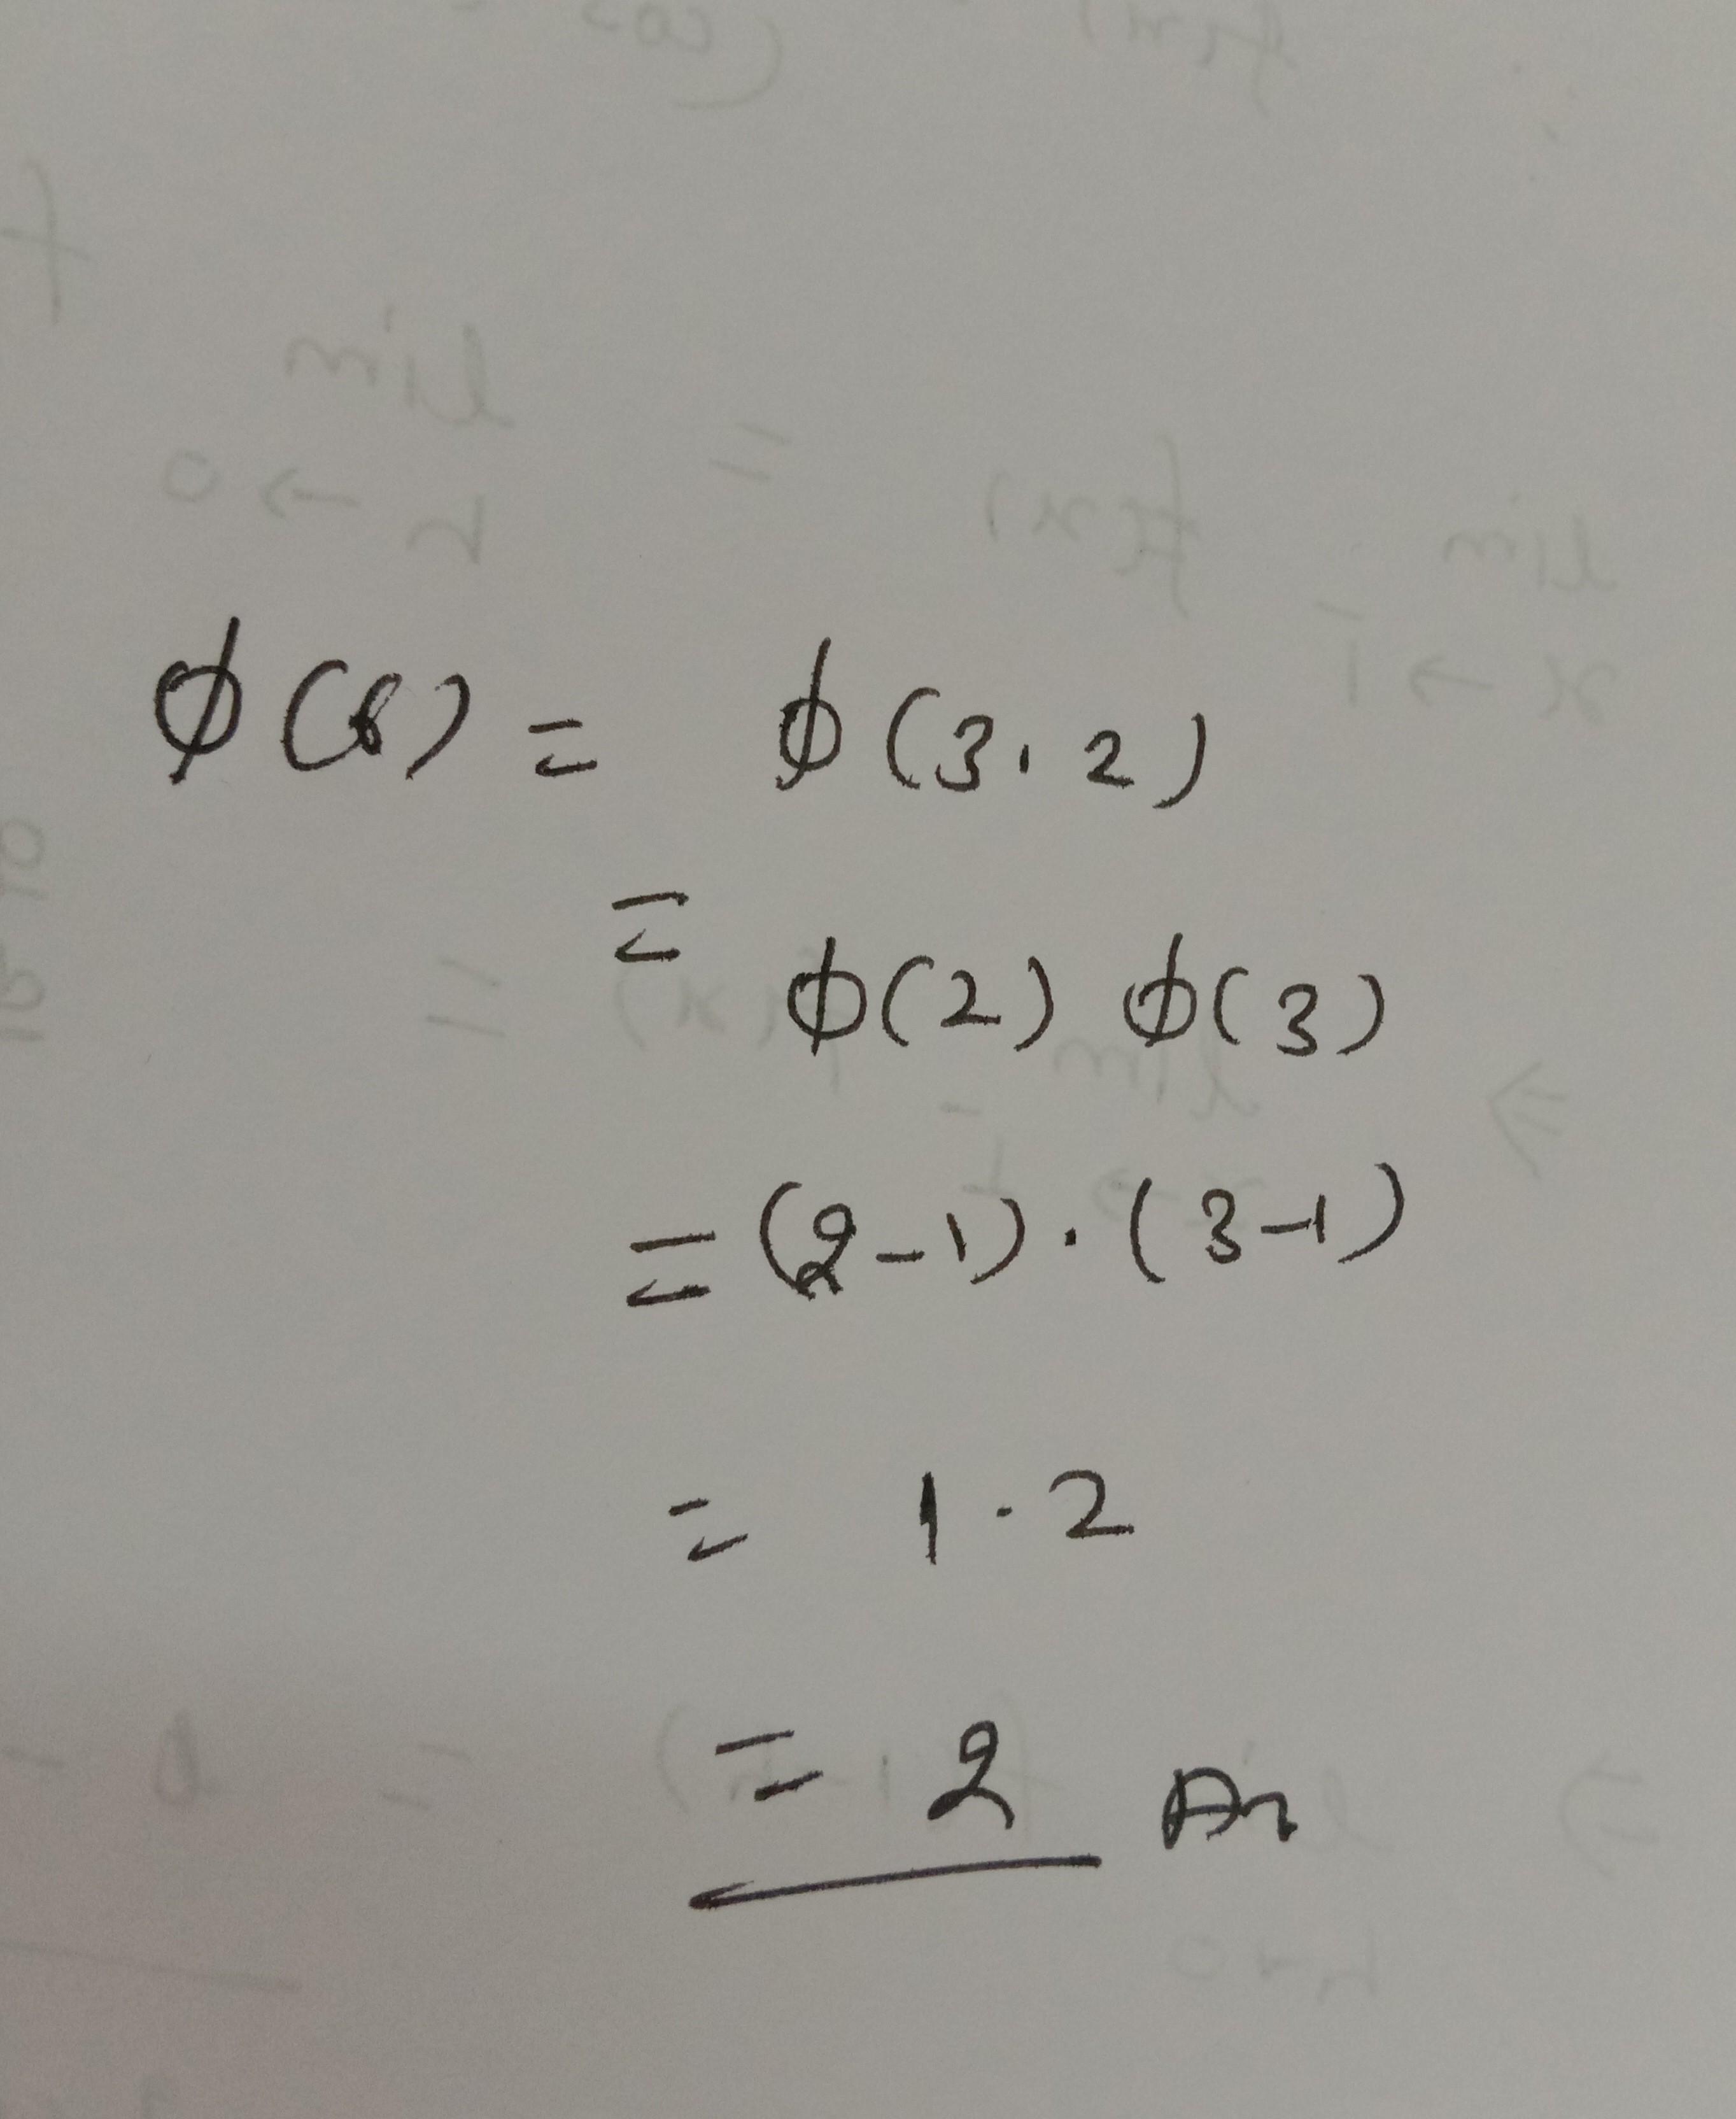 ϕ(6) = ϕ(3.2)
= ϕ(2) ϕ(3)
= (2-1).(3-1)
= 1.2
= 2 An